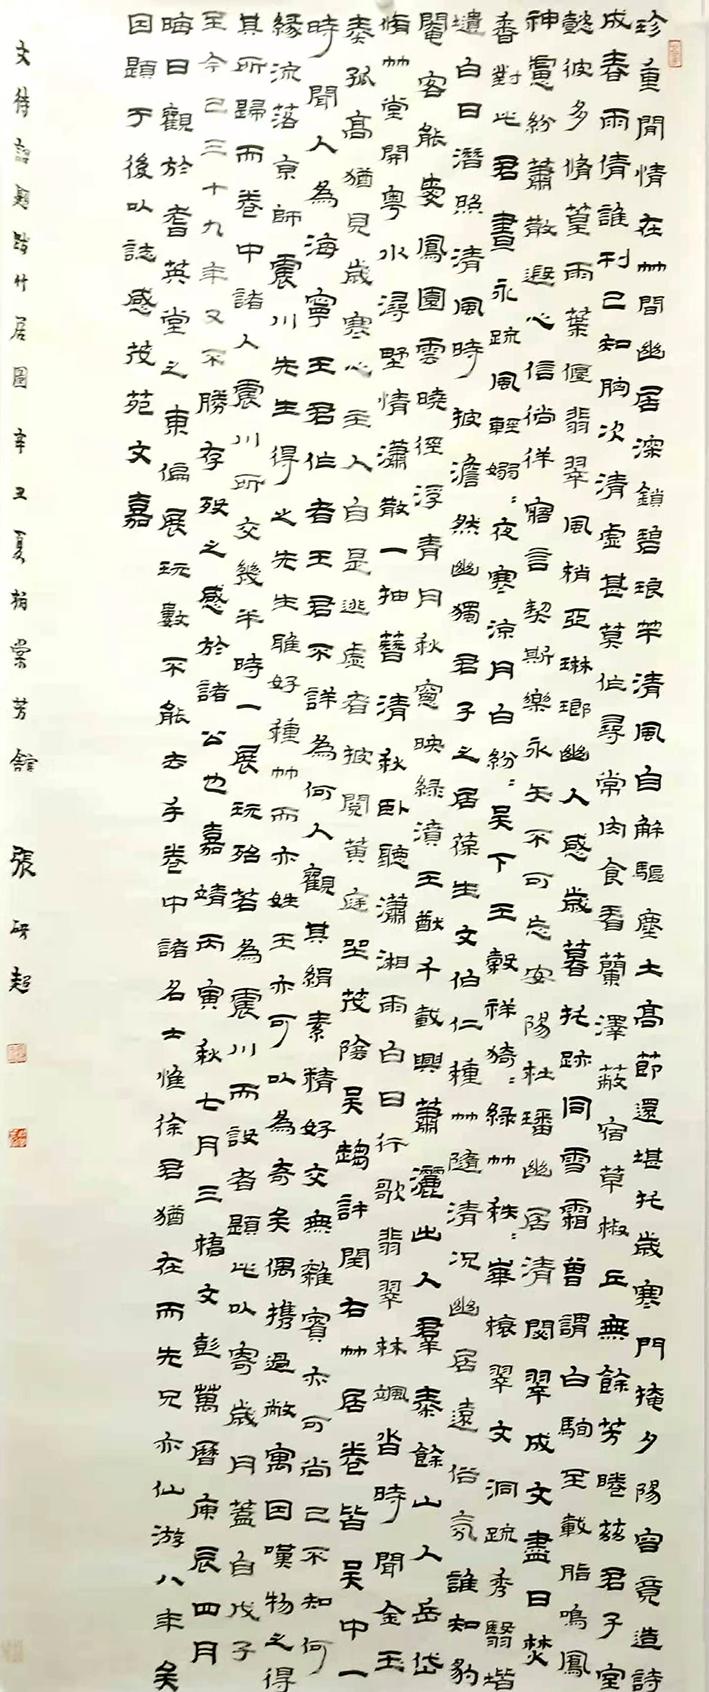 珍重閒情在竹間幽居深鎖碧琅玕清風自解驅塵土高節還堪托歲寒門掩夕陽容竟造詩
成春雨倩誰刊已知胸次清虛甚莫作尋常肉食看蘭澤蔽宿草椒丘無餘芳睠茲君子室
懿彼多脩篁雨葉偃翡翠風梢亞琳瑯幽人感歲暮托跡同雪霜曾謂白駒至載脂鳴鳳
神慮紛蕭散遐心信徜徉寤言契斯樂永矢不可忘安陽杜璠幽居清閟翠成文盡日焚
香對此君晝永疏風輕嫋〻夜寒涼月白紛〻吳下王穀祥猗〻綠竹秩〻崋榱翠文洞疏秀翳堦
遺白日潛照清風時披澹然幽獨君子之居葆生文伯仁種竹隨清況幽居遠俗氛誰知豹
閣客能委鳳園雲曉徑浮青月秋窗映綠濆王猷千載興蕭灑出人羣泰餘山人岳岱
脩竹堂開粵水潯野情瀟散一抽簪清秋臥聽瀟湘雨白日行歌翡翠林颯沓時聞金玉
奏孤高猶見歲寒心主人自是逃虛者披閱黃庭坐茂陰吳趨許閏右竹居卷皆吳中一
時聞人為海寧王君作者王君不詳為何人觀其絹素精好交無雜賓亦可尚已不知何
緣流落京師震川先生得之先生雖好種竹而亦姓王亦可以為奇矣偶攜過敝寓因嘆物之得
其所歸而卷中諸人震川所交幾半時一展玩殆若為震川而設者題此以寄歲月蓋自戊子
至今已三十九年又不勝存歿之感於諸公也嘉靖丙寅秋七月三橋文彭萬曆庚辰四月
晦日觀於耆英堂之東偏展玩數不能去手卷中諸名士惟徐君猶在而先兄亦仙游八年矣
因題于後以誌感茂苑文嘉
文待詔題跋竹居圖辛丑夏於棠芳館 張研超